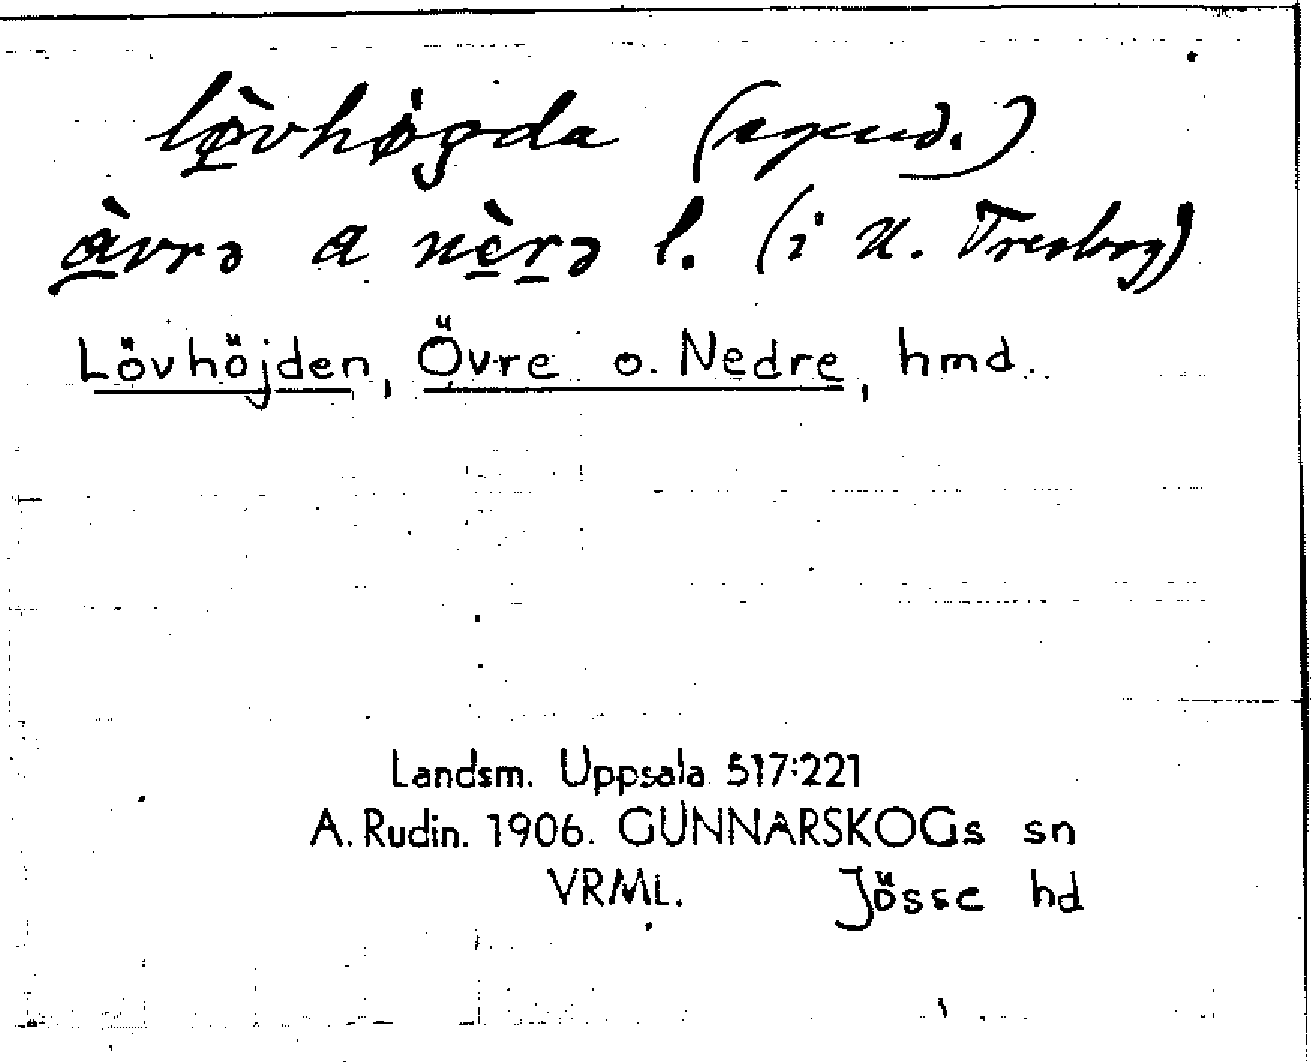 lò̠vhøgda (egend.)
à̠vrə a nè̠r̠ə l. (i N. Treskog)
Lövhöjden, Övre o. Nedre, hmd.
Landsm. Uppsala 517:221
A. Rudin. 1906. GUNNARSKOGs sn
VRML. Jösse hd